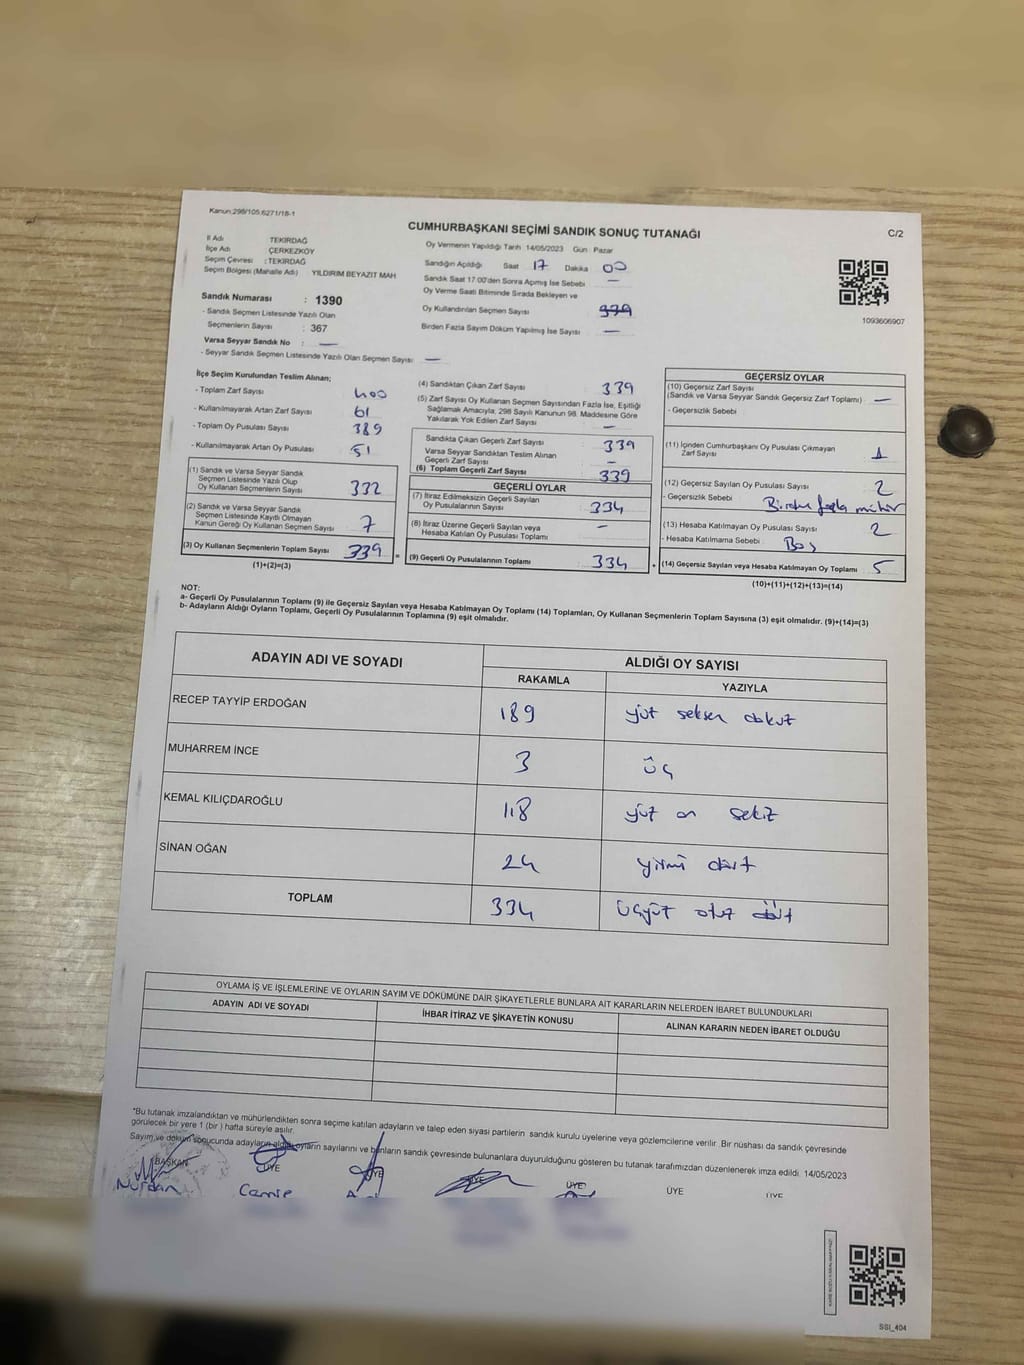 Kanun:298/105,6271/18-1
CUMHURBAŞKANI SEÇİMİ SANDIK SONUÇ TUTANAĞI
C/2
İl Adı TEKİRDAĞ
İlçe Adı ÇERKEZKÖY
Seçim Çevresi : TEKİRDAĞ
Seçim Bölgesi (Mahalle Adı) YILDIRIM BEYAZIT MAH
Oy Vermenin Yapıldığı Tarih 14/05/2023 Gün Pazar
Sandığın Açıldığı Saat 17 Dakika 00
Sandık Saat 17:00'den Sonra Açmış İse Sebebi —
Oy Verme Saati Bitiminde Sırada Bekleyen ve
Oy Kullandırılan Seçmen Sayısı 339
Birden Fazla Sayım Döküm Yapılmış İse Sayısı —
1093606907
Sandık Numarası : 1390
- Sandık Seçmen Listesinde Yazılı Olan
Seçmenlerin Sayısı : 367
Varsa Seyyar Sandık No : —
- Seyyar Sandık Seçmen Listesinde Yazılı Olan Seçmen Sayısı : —
İlçe Seçim Kurulundan Teslim Alınan;
- Toplam Zarf Sayısı 400
- Kullanılmayarak Artan Zarf Sayısı 61
- Toplam Oy Pusulası Sayısı 389
- Kullanılmayarak Artan Oy Pusulası 51
(1) Sandık ve Varsa Seyyar Sandık
Seçmen Listesinde Yazılı Olup
Oy Kullanan Seçmenlerin Sayısı 332
(2) Sandık ve Varsa Seyyar Sandık
Seçmen Listesinde Kayıtlı Olmayan
Kanun Gereği Oy Kullanan Seçmen Sayısı 7
(3) Oy Kullanan Seçmenlerin Toplam Sayısı 339
(1)+(2)=(3)
(4) Sandıktan Çıkan Zarf Sayısı 339
(5) Zarf Sayısı Oy Kullanan Seçmen Sayısından Fazla İse, Eşitliği
Sağlamak Amacıyla; 298 Sayılı Kanunun 98. Maddesine Göre
Yakılarak Yok Edilen Zarf Sayısı —
Sandıkta Çıkan Geçerli Zarf Sayısı 339
Varsa Seyyar Sandıktan Teslim Alınan
Geçerli Zarf Sayısı —
(6) Toplam Geçerli Zarf Sayısı 339
GEÇERLİ OYLAR
(7) İtiraz Edilmeksizin Geçerli Sayılan
Oy Pusulalarının Sayısı 334
(8) İtiraz Üzerine Geçerli Sayılan veya
Hesaba Katılan Oy Pusulası Toplamı —
(9) Geçerli Oy Pusulalarının Toplamı 334
GEÇERSİZ OYLAR
(10) Geçersiz Zarf Sayısı
(Sandık ve Varsa Seyyar Sandık Geçersiz Zarf Toplamı) —
- Geçersizlik Sebebi
(11) İçinden Cumhurbaşkanı Oy Pusulası Çıkmayan
Zarf Sayısı 1
(12) Geçersiz Sayılan Oy Pusulası Sayısı 2
- Geçersizlik Sebebi Birden fazla mühür
(13) Hesaba Katılmayan Oy Pusulası Sayısı 2
- Hesaba Katılmama Sebebi : Boş
(14) Geçersiz Sayılan veya Hesaba Katılmayan Oy Toplamı 5
(10)+(11)+(12)+(13)=(14)
NOT:
a- Geçerli Oy Pusulalarının Toplamı (9) ile Geçersiz Sayılan veya Hesaba Katılmayan Oy Toplamı (14) Toplamları, Oy Kullanan Seçmenlerin Toplam Sayısına (3) eşit olmalıdır. (9)+(14)=(3)
b- Adayların Aldığı Oyların Toplamı, Geçerli Oy Pusulalarının Toplamına (9) eşit olmalıdır.
ADAYIN ADI VE SOYADI
ALDIĞI OY SAYISI
RAKAMLA YAZIYLA
RECEP TAYYİP ERDOĞAN 189 yüz seksen dokuz
MUHARREM İNCE 3 üç
KEMAL KILIÇDAROĞLU 118 yüz on sekiz
SİNAN OĞAN 24 yirmi dört
TOPLAM 334 üçyüz otuz dört
OYLAMA İŞ VE İŞLEMLERİNE VE OYLARIN SAYIM VE DÖKÜMÜNE DAİR ŞİKAYETLERLE BUNLARA AİT KARARLARIN NELERDEN İBARET BULUNDUKLARI
ADAYIN ADI VE SOYADI İHBAR İTİRAZ VE ŞİKAYETİN KONUSU ALINAN KARARIN NEDEN İBARET OLDUĞU
"Bu tutanak imzalandıktan ve mühürlendikten sonra seçime katılan adayların ve talep eden siyasi partilerin sandık kurulu üyelerine veya gözlemcilerine verilir. Bir nüshası da sandık çevresinde
görülecek bir yere 1 (bir ) hafta süreyle asılır.
Sayım ve döküm sonucunda adayların aldığı oyların sayılarını ve bunların sandık çevresinde bulunanlara duyurulduğunu gösteren bu tutanak tarafımızdan düzenlenerek imza edildi. 14/05/2023
BAŞKAN ÜYE ÜYE ÜYE ÜYE ÜYE ÜYE
Nurdan
SSI_404